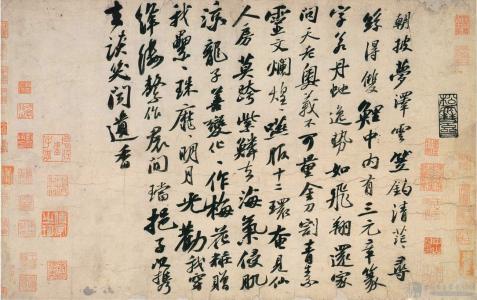 朝披夢澤雲笠釣清茫々尋
絲得雙鯉中内有三元章篆
字若丹蛇逸勢如飛翔還家
問天老奧義不可量金刀割青素
靈文爛煌々嚥服十二環奄見仙
人房莫跨紫鱗去海氣侵肌
涼龍子善變化々作梅花粧贈
我纍々珠靡々明月光勸我穿
絳縷繫作裙間璫挹子以攜
去談笑聞遺香